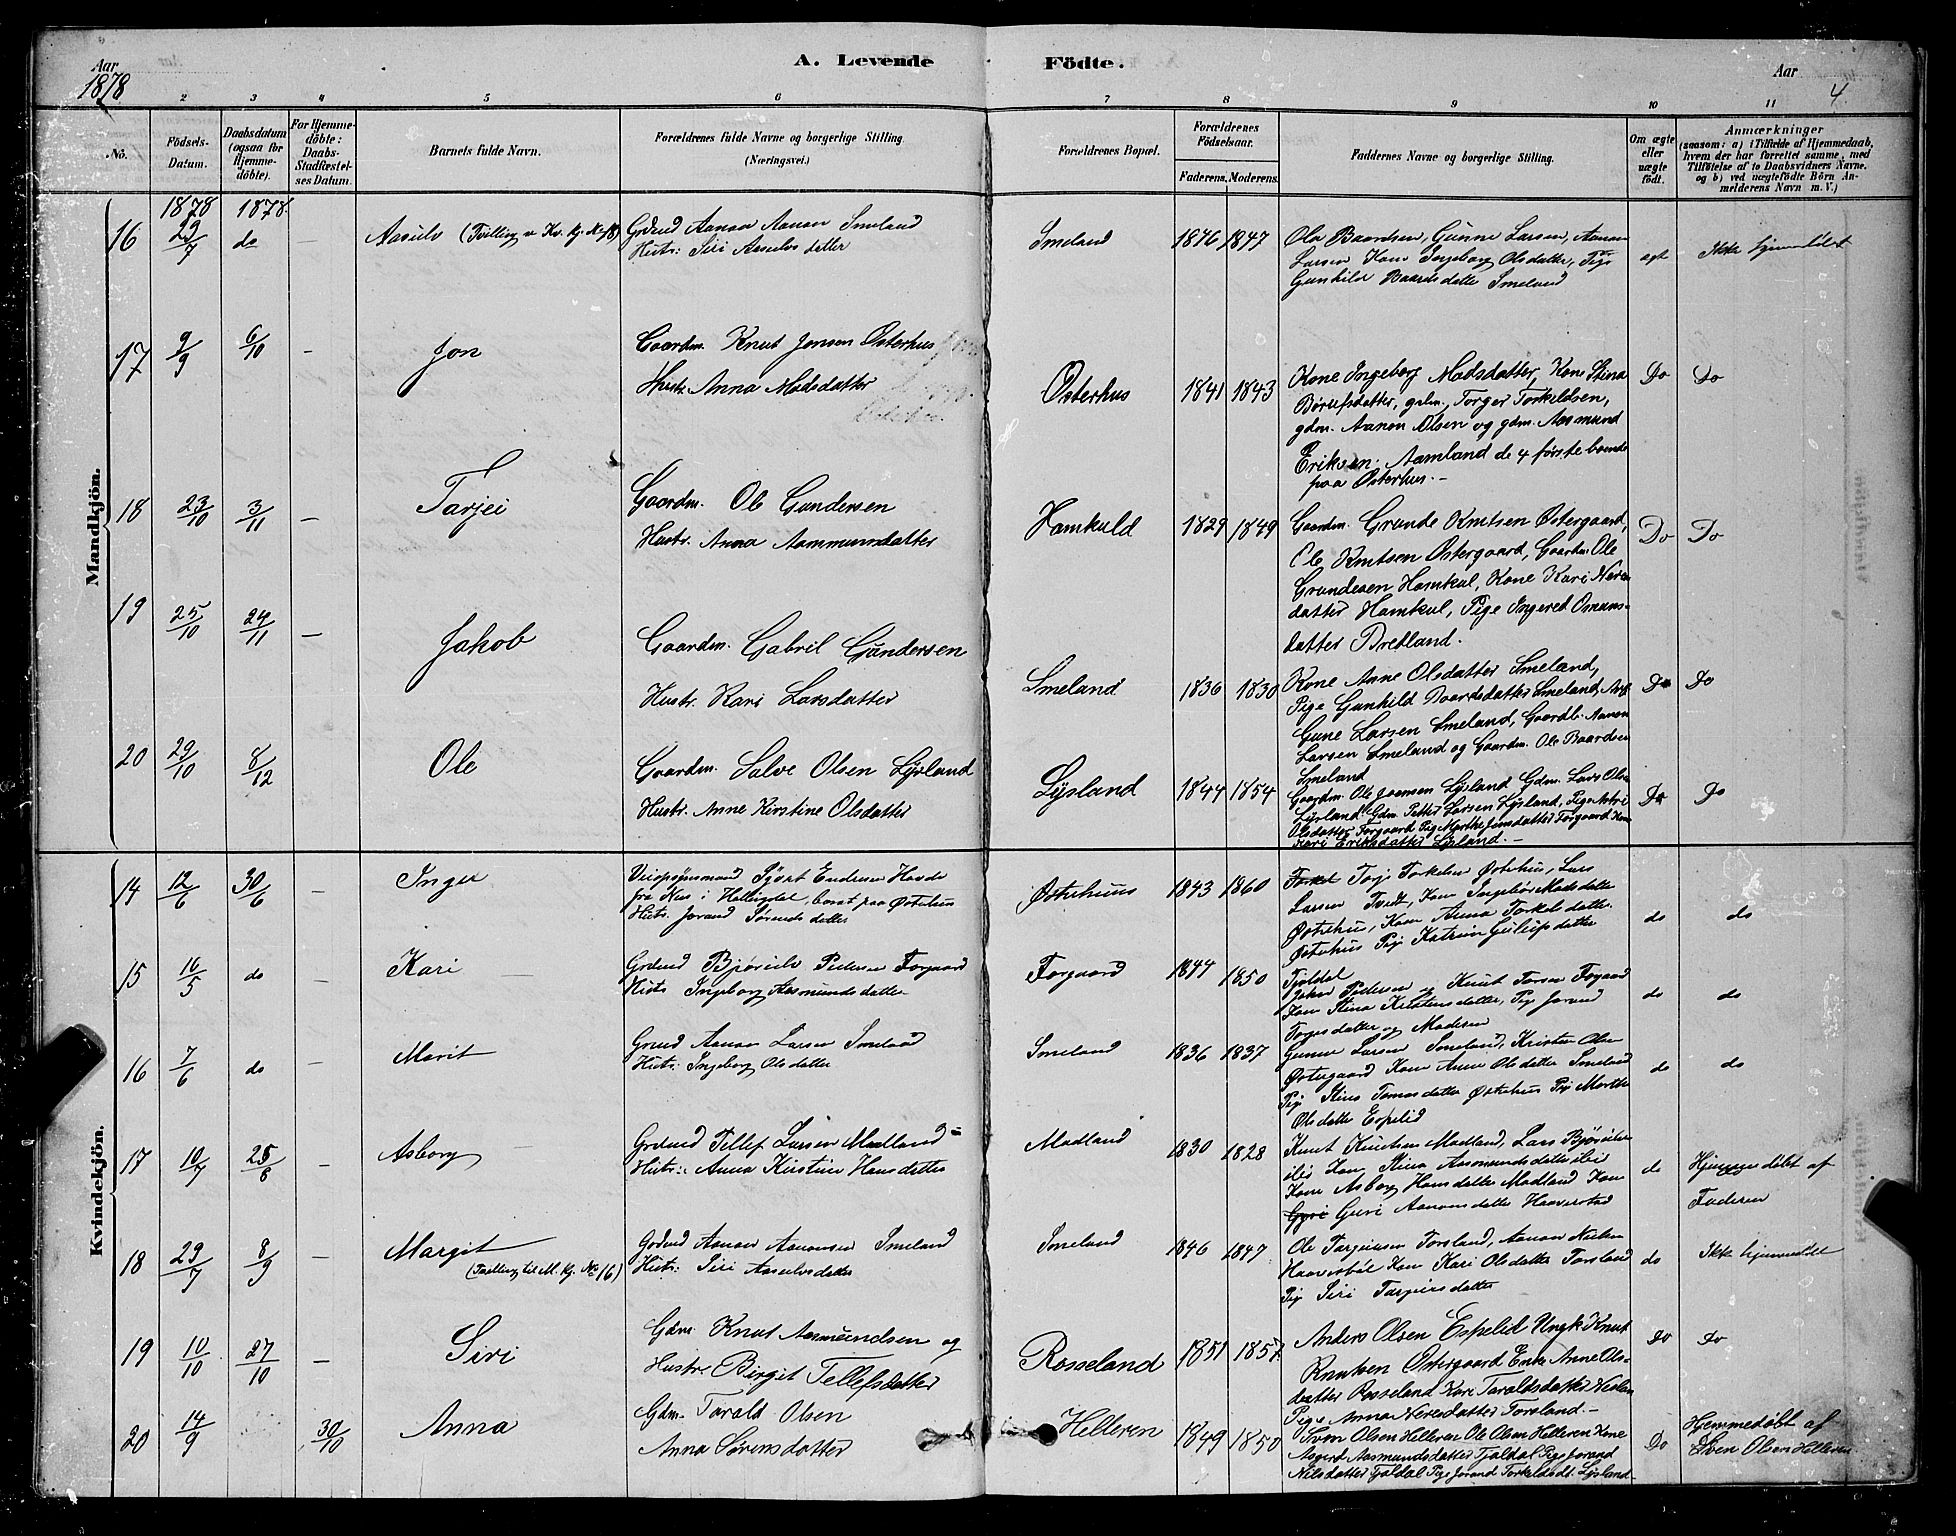 Aar
1878
A. Levende Födte.
Aar
4.
2 3 4 5 6 7 8 9 10 11
No.
Födsels-Datum.
Daabsdatum (ogsaa for Hjemmedöbte).
For Hjemmedöbte: Daabs-Stadfæstelses Datum.
Barnets fulde Navn.
Forældrenes fulde Navne og borgerlige Stilling (Næringsvei.)
Forældrenes Bopæl.
Forældrenes Födselsaar.
Faderens. Moderens.
Faddernes Navne og borgerlige Stilling.
Om ægte eller uægte födt.
Anmærkninger (saasom: a) i Tilfælde af Hjemmedaab, hvem der har forrettet samme, med Tilföielse af to Daabsvidners Navne. og b) ved uægtefödte Börn Anmelderens Navn m. V.)
Mandkjön.
1878 1878.
16 29/7 do — Aasulv (Tvilling v Kv. Kj. No 18) Grdmd Aanon Aanon Smeland
Hustr: Siri Aasulvsdatter
Smeland 1846 1847
Ole Baardsen, Gunne Larsen, Aanon
Larsen Kone Ingeborg Olsdatter, Pige
Gunhild Baardsdatter Smeland
ægt Ikke hjemmedöbt
17 9/9 6/10 — Jon Gaardm. Knut Jonsen Østerhus
Hustr. Anna Madsdatter
Østerhus 1841 1843
Kone Ingeborg Madsdatter, Kone Stina
gdm. Torger Torkildsen,
gdm. Aanon Olsen og gdm. Aasmund
Eriksen Aamland de 4 første boende
paa Østerhus.—
Do Do
18 23/10 3/11 — Tarjei Gaardm. Ole Gundersen
Hustr. Anna Aammundsdatter
Hamkuld 1829 1849
Gaardm. Grunde Knutsen Østergaard,
Ole Knutsen Østergaard, Gaardm. Ole
Grundesen Hamkul, Kone Kari
datter Hamkul, Pige Ingered Omunsdatter
Bredland.
Do Do
19 25/10 24/11 — Jakob Gaardm. Gabril Gundersen
Hustr. Kari Larsdatter
Smeland 1836 1830
Kone Anne Olsdatter Smeland,
Pige Gunhild Baardsdatter Smeland,
Gune Larsen Smeland, Gaardb. Aanon
Larsen Smeland og Gaardm. Ole Baardsen
Smeland
Do Do
20 29/10 8/12 Ole Gaardm. Salve Olsen Lysland
Hustr. Anne Kirstine Olsdatter
Lysland 1844 1854
Gaardm. Ole Joansen Lysland Gdm. Lars Olsen
Lysland Gdm. Petter Larsen Lysland, Pige
Olsdatter Forgaard Pig Marthe Jensdatter Forgaard Kone
Kari Eriksdatter Lysland.—
Do Do
Kvindekjön.
14 12/6 30/6 — Inger Endersen
fra Næs i Hallingdal, bosat paa Østehus
Hustr. Jorand Sørensdatter
Østrehuus 1843 1860
Torkel Torje Torkelsen Østehus, Lars
Larsen Tvedt, Kone Ingebør Madsdatter
Østrehus, Kone Anna Torkelsdatter
Østrehus Pige Katrine
Fjeldal
do do
15 16/5 do Kari — Grdmd Bjørulv Pedersen Forgaard
Hustr Ingeborg Aasmundsdatter
Forgaard 1844 1850
Johan Pedersen og Knut Torsen Forgaard
Kone Stina Kristensdatter, Pige Jorand
Torgesdatter og Moderen
do do
16 7/6 do Marit Grdmd Aanon Larsen Smeland
Hustr: Ingeborg Olsdatter
Smeland 1836 1837
Gunne Larsen Smeland, Kristen Olsen
Østergaard Kone Anne Olsdatter Smeland
Pige Stina Tomasdatter Østrehus Pige Marthe
Olsdatter Espelid
do do
17 10/7 25/8 — Asborg Grdmd Tellef Larsen Madland
Hustr: Anna Kirstine Hansdatter
Madland 1830 1828
Knut Knutsen Madland, Lars Bjørulvsen
ibid Kone Stina Aasmundsdatter ibid
Kone Asborg Hansdatter Madland Kone
Guri Aanonsdatter Haaverstad
do Hjemmedøbt af
Faderen
18 29/7 8/9 — Margit
(Tvilling til M. Kj. No 16)
Grdmd Aanon Aanonsen Smeland
Hustr: Siri Aasulvsdatter
Smeland 1846 1847
Ole Targeirsen Torsland, Aanon Nielsen
Haaverstøl Kone Kari Olsdatter Torsland
Pige Siri Targeirsdatter
do Ikke hjemmedöbt
19 10/10 27/10 — Siri Gdm Knut Aasmundsen og
Hustr. Birgit Tellefsdatter
Rosseland 1851 1857
Anders Olsen Espelid Ungk Knut
Knutsen Østergaard Enke Anne Olsdatter
Rosseland Kari Taraldsdatter
Pige Anna Neresdatter Torsland.—
Do Do
20 14/9 30/10 Anna Gdm. Tarald Olsen
Anna Sørensdatter
Helleren 1849 1850
Sven Olsen Helleren Ole Olsen Helleren Kone
Asgerd Aasmundsdatter Fjaldal Pige Jorand
Nilsdatter Fjaldal Pige Jorand Torkelsdt. Lysland
Do Hjemmedøbt af
Sven Olsen Helleren